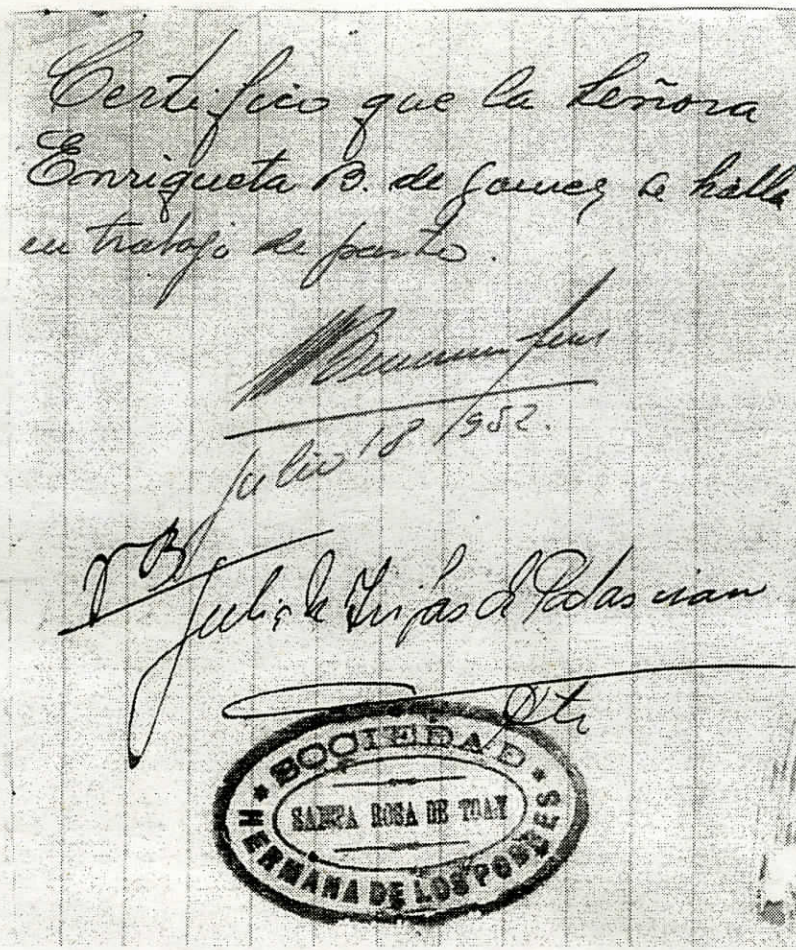 Certifico que la Señora
Enriqueta B. de Gomez se halla
en trabajo de parto.
Julio 18 1952.
Vº Bº
Julia de
Pta
SOCIEDAD
SANTA ROSA DE TOAY
HERMANA DE LOS POBRES